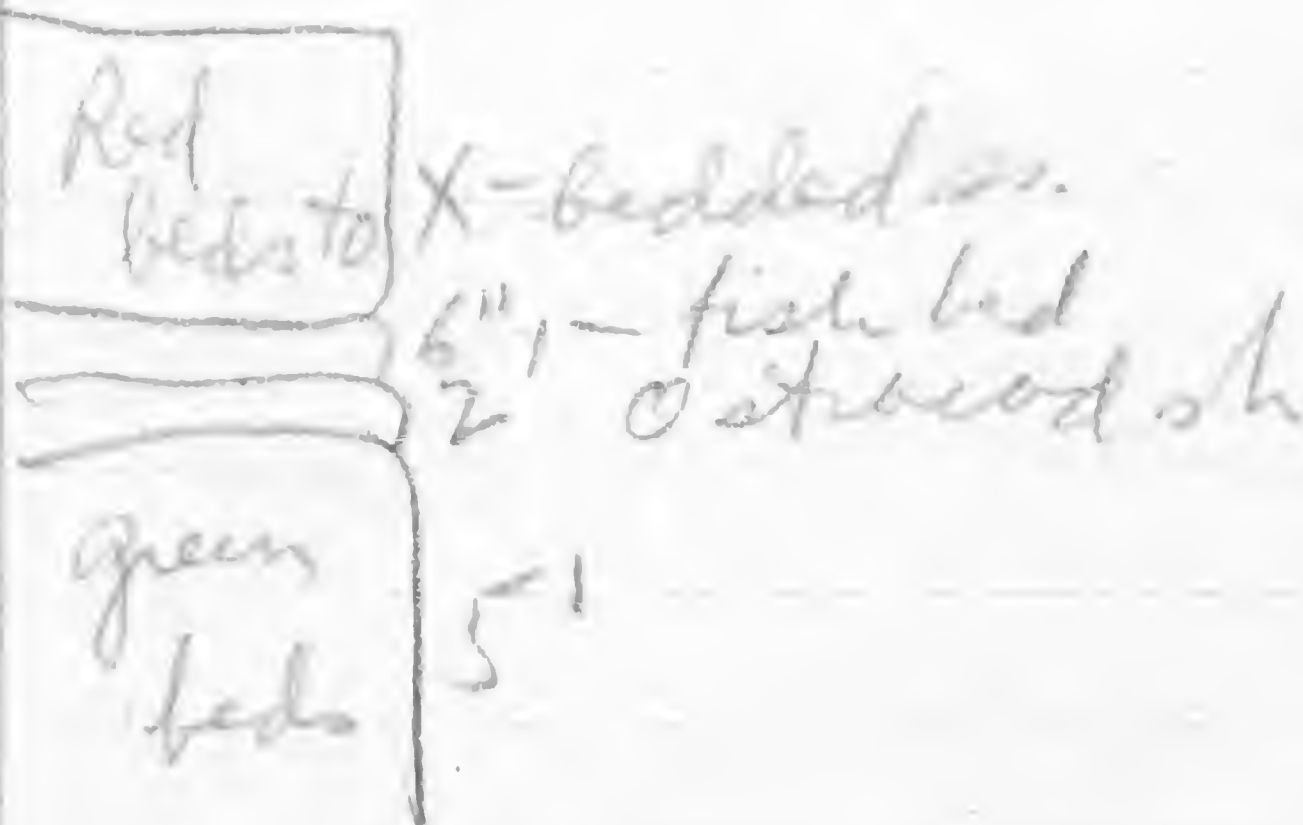 Red
beds to X-bedded ss.
6" - fish bed
2" Ostracod sh
green 5'
beds